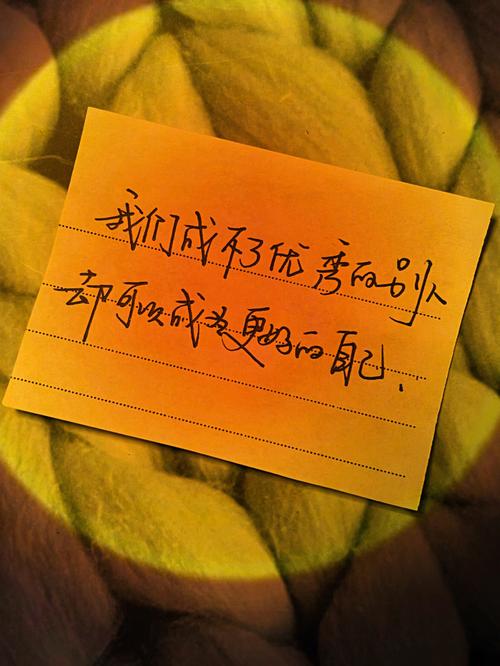 我们成不了优秀的别人
却可以成为更好的自己、